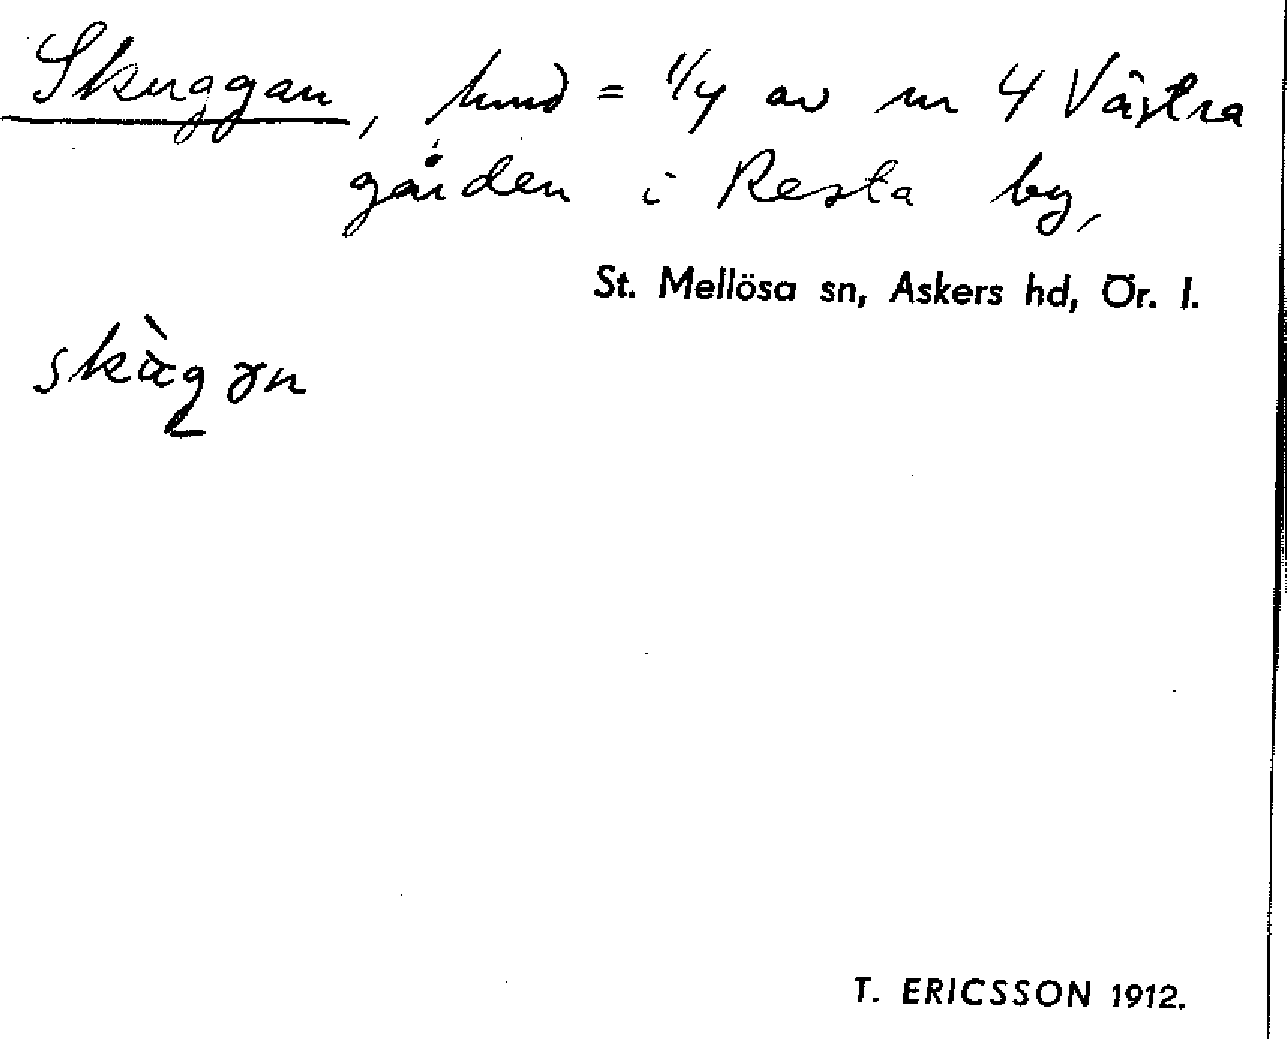 Skuggan, hmd = 1/4 av nr 4 Västra
gården i Resta by,
St. Mellösa sn, Askers hd, Ör. l.
T. ERICSSON 1912.